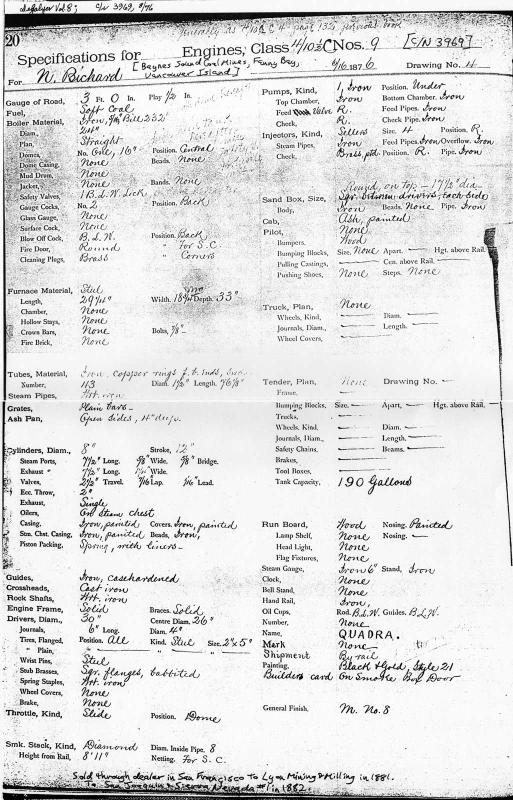 20
Specifications for Engines, Class 4/10½C Nos. 9 [C/N 3969]
[Baynes Sound Coal Mines, Fanny Bay,
For N. Richard Vancouver Island] 6/16. 1876 Drawing No. 4
Gauge of Road, 3 Ft. 0 In. Play ½ In.
Fuel, Soft Coal
Boiler Material, Iron,
Diam.,
Plan, Straight
Domes, No. One, 16" Position. Central
Dome Casing, None Beads. None
Mud Drum, None
Jacket, None Bands. None
Safety Valves, 1 B.L.W. Lock
Gauge Cocks, No. 2 Position. Back
Glass Gauge, None
Surface Cock, None
Blow Off Cock, B.L.W. Position. Back
Fire Door, Round For S.C.
Cleaning Plugs, Brass " Corners
Furnace Material, Steel
Length, Width. Depth. 33"
Chamber, None
Hollow Stays, None
Crown Bars, None Bolts, 7/8"
Fire Brick, None
Tubes, Material, Iron, copper rings f.b. ends,
Number, 113 Diam. 1½" Length.
Steam Pipes, Wrt. iron
Grates, Plain bars
Ash Pan, Open sides, 4" deep.
Cylinders, Diam., 8" Stroke, 12"
Steam Ports, 7½" Long. 5/8" Wide. 5/8" Bridge.
Exhaust " 7½" Long. Wide.
Valves, 2½" Travel. Lap. 1/16" Lead.
Ecc. Throw, 2"
Exhaust, Single
Oilers, On steam chest
Casing, Iron, painted Covers. Iron, painted
Stm. Chst. Casing, Iron, painted Beads, Iron,
Piston Packing, Spring, with liners -
Guides, Iron, casehardened
Crossheads, Cast iron
Rock Shafts, Wrt. iron
Engine Frame, Solid Braces. Solid
Drivers, Diam., 30" Centre Diam. 26"
Journals, 6" Long. Diam. 4"
Tires, Flanged, Position. All Kind. Steel Size. 2" x 5"
" Plain, " " "
Wrist Pins, Steel
Stub Brasses, Sqr. flanges, babbited
Spring Staples, Wrt. iron
Wheel Covers, None
Brake, None
Throttle, Kind, Slide Position. Dome
Smk. Stack, Kind, Diamond Diam. Inside Pipe. 8
Height from Rail, 8' 11" Netting. For S.C.
Pumps, Kind, 1, Iron Position. Under
Top Chamber, Iron Bottom Chamber. Iron
Feed Valve R. Feed Pipes. Iron
Check, R. Check Pipe. Iron
Injectors, Kind, Sellers Size. 4 Position. R.
Steam Pipes, Iron Feed Pipes. Iron Overflow. Iron
Check, Brass, ptd. Position. R. Pipe. Iron
Round, on Top - 17½" dia
Sand Box, Size, Sqr. Between drivers, Each Side
Body, Iron Beads. None Pipe. Iron
Cab, Ash, painted
Pilot, None
Bumpers, Wood
Bumping Blocks, Size, None Apart. — Hgt. above Rail. —
Pulling Castings, — Cen. above Rail. —
Pushing Shoes, None Steps. None
Truck, Plan, None
Wheels, Kind, — Diam. —
Journals, Diam., — Length. —
Wheel Covers, —
Tender, Plan, None Drawing No. —
Frame, —
Bumping Blocks, Size. — Apart, — Hgt. above Rail, —
Trucks, —
Wheels, Kind, — Diam. —
Journals, Diam., — Length. —
Safety Chains, — Beams. —
Brakes, —
Tool Boxes, —
Tank Capacity, 190 Gallons
Run Board, Wood Nosing. Painted
Lamp Shelf, None Nosing. —
Head Light, None
Flag Holders, None
Steam Gauge, Iron 6" Stand, Iron
Clock, None
Bell Stand, None
Hand Rail, Iron,
Oil Cups, Rod. B.L.W. Guides. B.L.W.
Number, None
Name, QUADRA.
Mark None
Shipment By rail
Painting, Black & Gold, Style 21
Builders card On Smoke Box Door
General Finish, M. No. 8
Sold through dealer in San Francisco to Lyon Mining & Milling in 1881.
To San Joaquin & Sierra Nevada #1 in 1882.